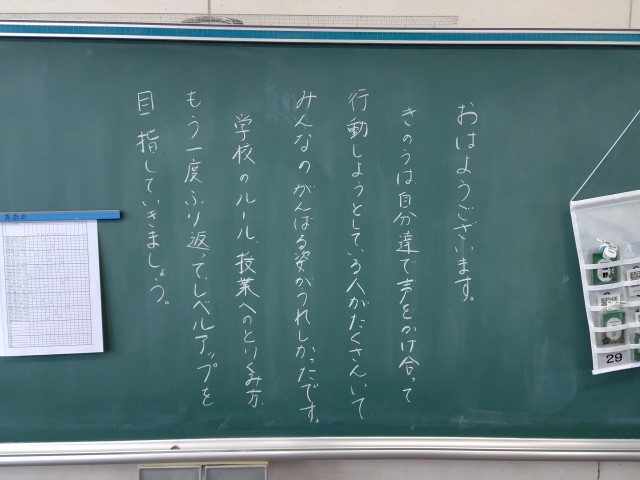 おはようございます。
きのうは、自分達で声をかけ合って
行動しようとしている人がたくさんいて
みんなのがんばる姿がうれしかったです。
学校のルール、授業へのとりくみ方、
もう一度ふり返って、レベルアップを
目指していきましょう。
29